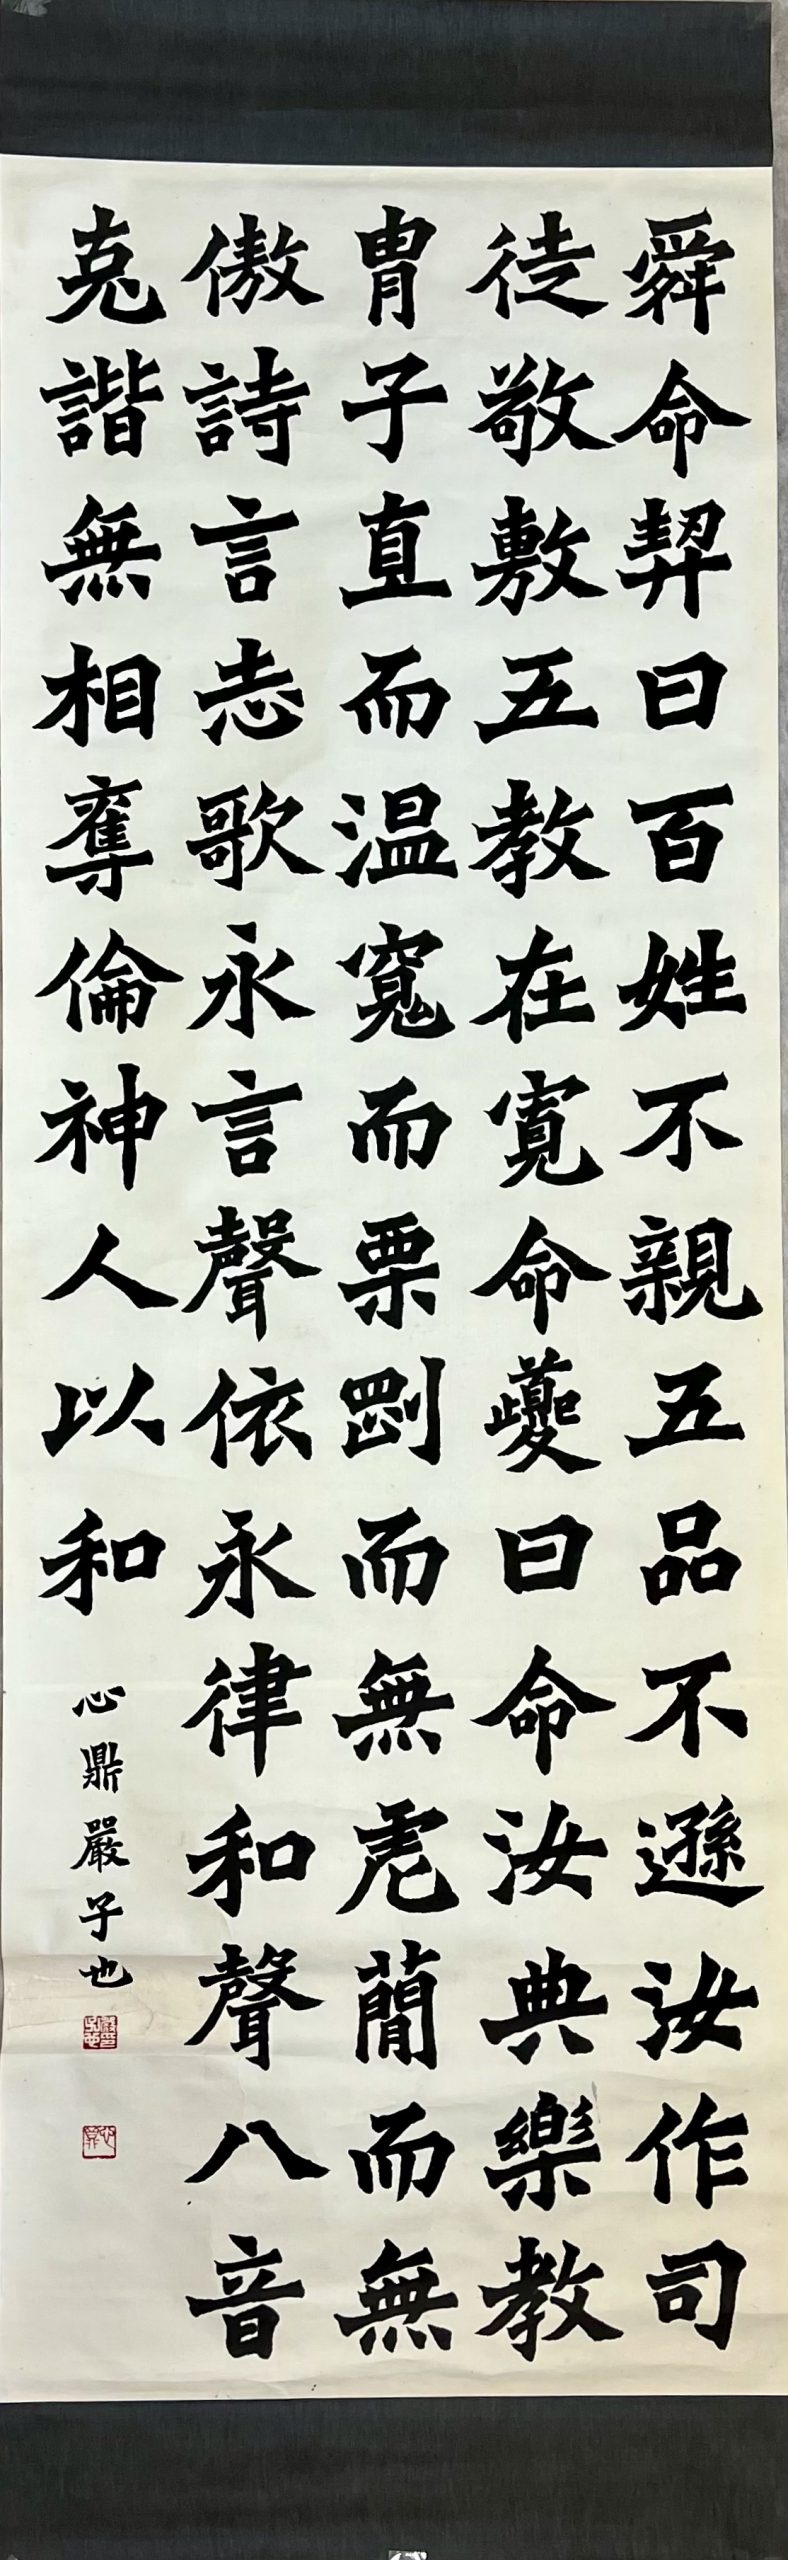 舜命契曰百姓不親五品不遜汝作司
徒敬敷五教在寬命夔曰命汝典樂教
胄子直而温寬而栗剛而無虐簡而無
傲詩言志歌永言聲依永律和聲八音
克諧無相奪倫神人以和
心鼎嚴子也